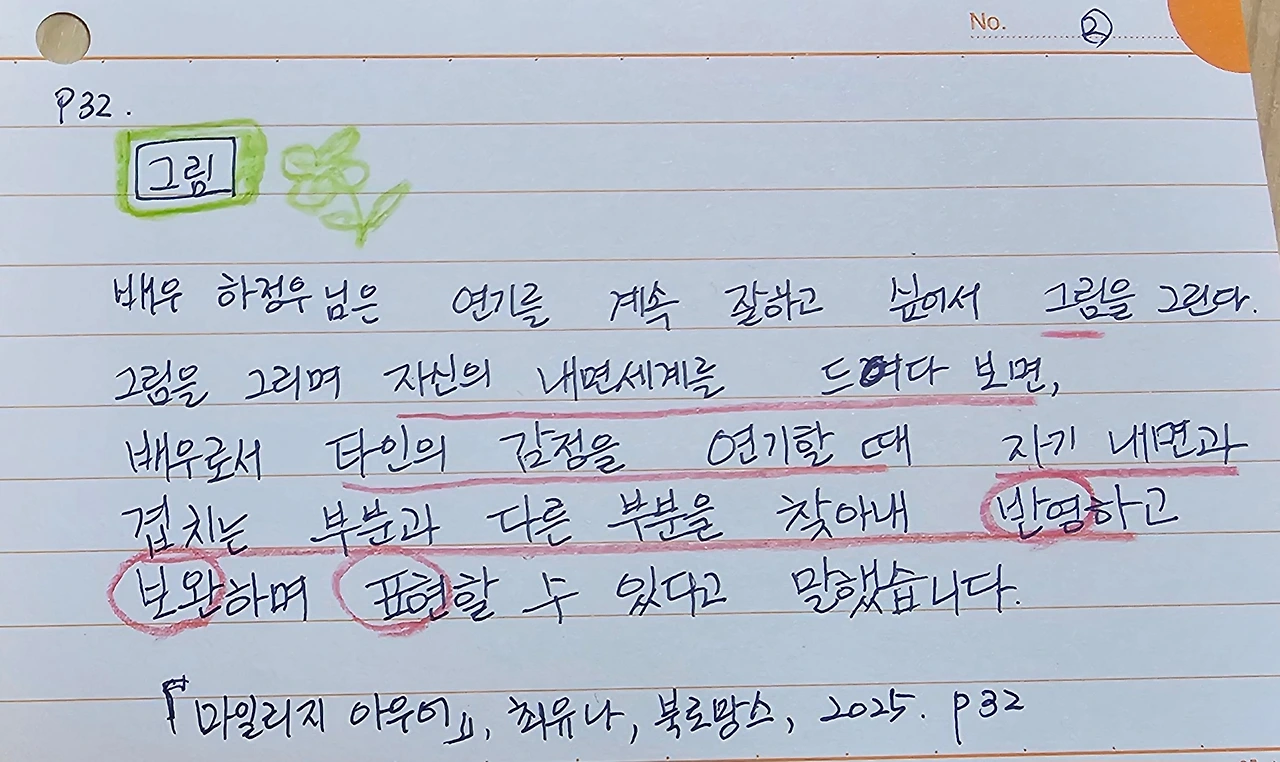 No. ②
P32.
그림
배우 하정우님은 연기를 계속 잘하고 싶어서 그림을 그린다.
그림을 그리며 자신의 내면세계를 드여다 보면,
배우로서 타인의 감정을 연기할 때 자기 내면과
겹치는 부분과 다른 부분을 찾아내 반영하고
보완하며 표현할 수 있다고 말했습니다.
『마일리지 아우어』, 최유나, 북로망스, 2025. p32